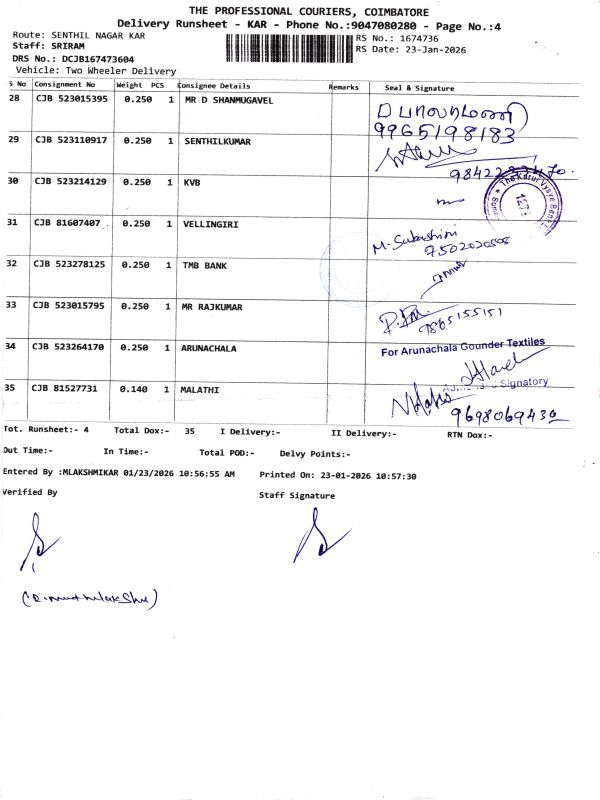 THE PROFESSIONAL COURIERS, COIMBATORE
Delivery Runsheet - KAR - Phone No.:9047080280 - Page No.:4
Route: SENTHIL NAGAR KAR
RS No.: 1674736
Staff: SRIRAM
RS Date: 23-Jan-2026
DRS No.: DCJB167473604
Vehicle: Two Wheeler Delivery
S No Consignment No Weight PCS Consignee Details Remarks Seal & Signature
28 CJB 523015395 0.250 1 MR D SHANMUGAVEL
9965198183
29 CJB 523110917 0.250 1 SENTHILKUMAR
30 CJB 523214129 0.250 1 KVB
31 CJB 81607407 0.250 1 VELLINGIRI M. Subashini
7502020508
32 CJB 523278125 0.250 1 TMB BANK
33 CJB 523015795 0.250 1 MR RAJKUMAR
9865155151
34 CJB 523264170 0.250 1 ARUNACHALA For Arunachala Gounder Textiles
Signatory
35 CJB 81527731 0.140 1 MALATHI
9698069430
Tot. Runsheet:- 4 Total Dox:- 35 I Delivery:- II Delivery:- RTN Dox:-
Out Time:- In Time:- Total POD:- Delvy Points:-
Entered By :MLAKSHMIKAR 01/23/2026 10:56:55 AM Printed On: 23-01-2026 10:57:30
Verified By Staff Signature